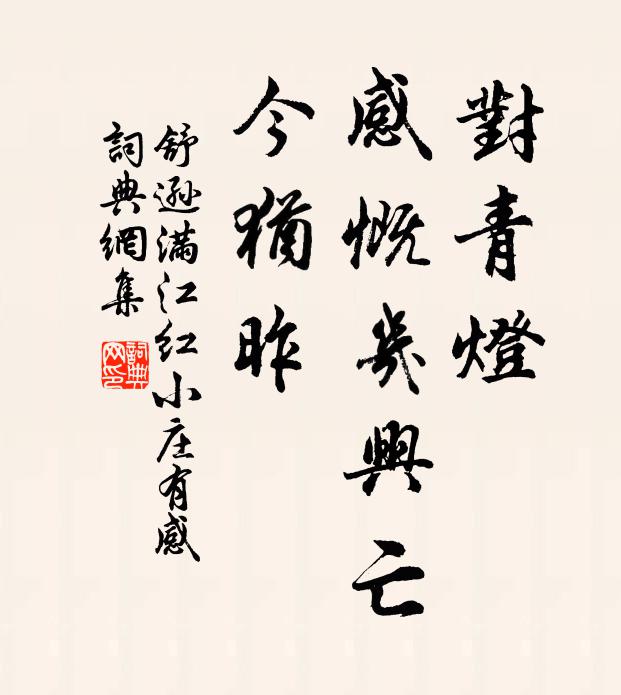 對青燈
感慨幾興亡
今猶昨
舒遜滿江红小庄有感
詞典網集
詞典网印